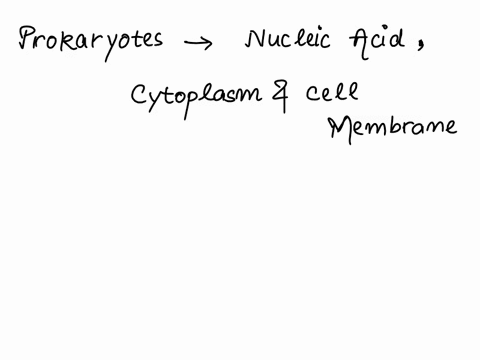 Prokaryotes → Nucleic Acid,
Cytoplasm & cell
Membrane